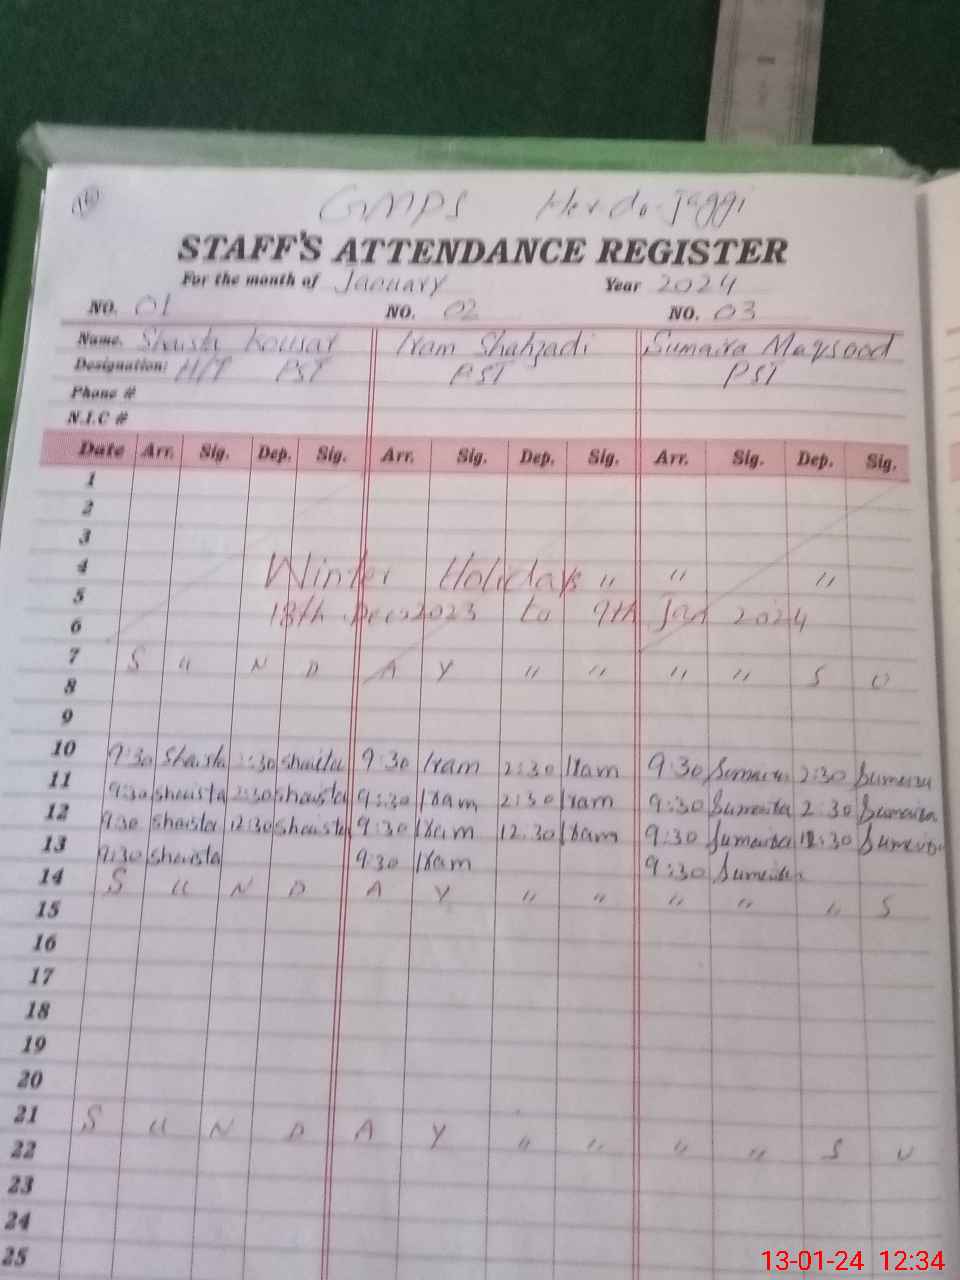 (16)
GMPS Herdo-Jaggi
STAFF'S ATTENDANCE REGISTER
For the month of January Year 2024
NO. 01 NO. 02 NO. 03
Name. Shaista Kousar Iram Shahzadi Sumaira Maqsood
Designation: H/T PST PST PST
Phone #
N.I.C #
Date Arr. Sig. Dep. Sig. Arr. Sig. Dep. Sig. Arr. Sig. Dep. Sig.
1
2
3
4 Winter Holidays " " "
5 18th Dec 2023 to 9th Jan 2024
6
7 S U N D A Y " " " " S U
8
9
10 9:30 Shaista 2:30 Shaista 9:30 Iram 2:30 Iram 9:30 Sumaira 2:30 Sumaira
11 9:30 Shaista 2:30 Shaista 9:30 Iram 2:30 Iram 9:30 Sumaira 2:30 Sumaira
12 9:30 Shaista 12:30 Shaista 9:30 Iram 12:30 Iram 9:30 Sumaira 12:30 Sumaira
13 9:30 Shaista 9:30 Iram 9:30 Sumaira
14 S U N D A Y " " " " " S
15
16
17
18
19
20
21 S U N D A Y " " " " S U
22
23
24
25
13-01-24 12:34